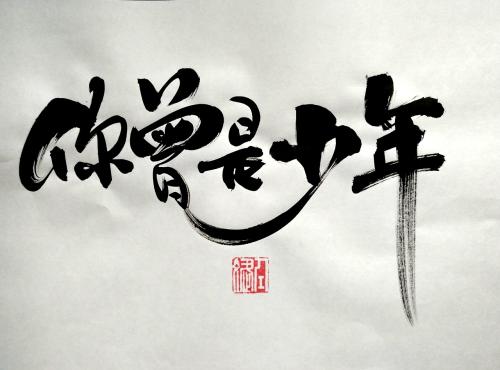 你曾是少年